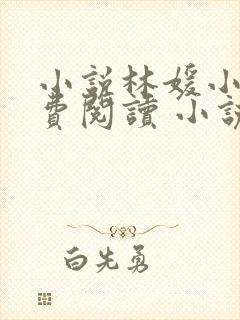 小說林媛小
費閱讀 小說
白先勇